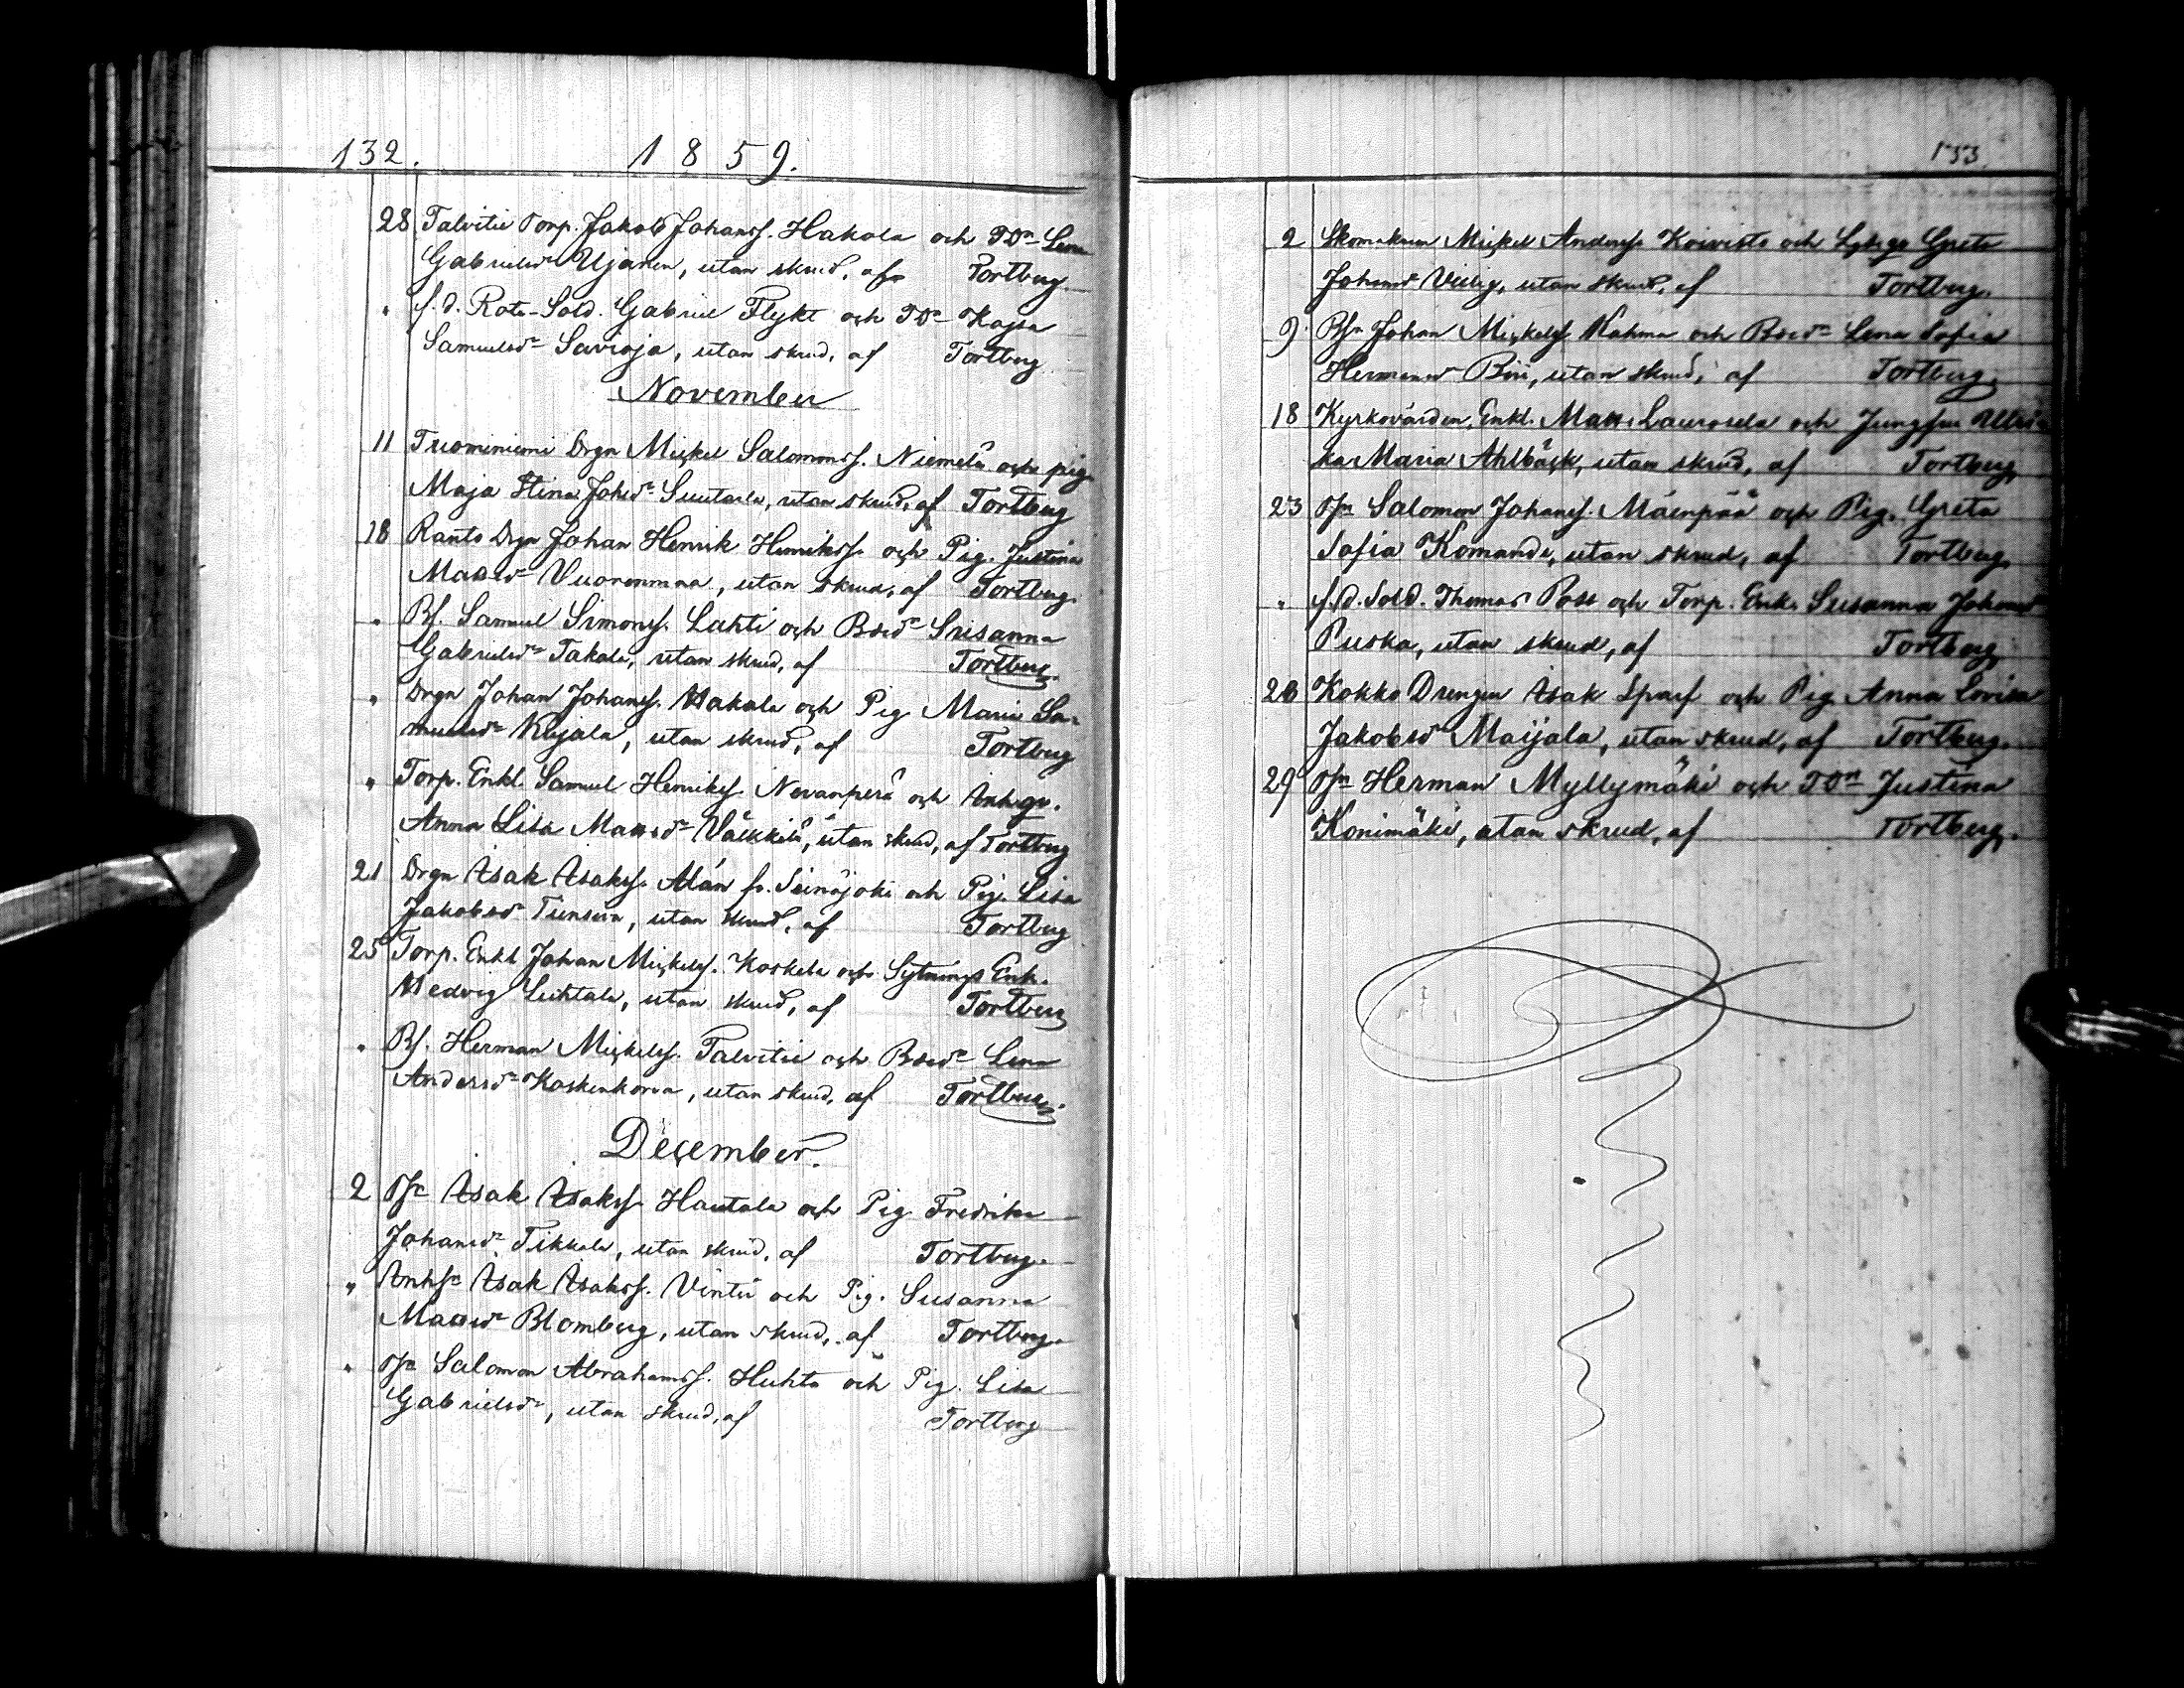 132. 1859.
28 Talvitie Torp. Jakob Johanss. Hakola och TDr Lena
Gabrielsdr Ujanen, utan skrud, af Tortberg.
" f.d. Rote-Sold. Gabriel Flykt och TDr Kajsa
Samuelsdr Savioja, utan skrud, af Tortberg
November
11 Tuominiemi Drgn Mickel Salomonss. Niemelä och pig.
Maja Stina Johsdr Suutala, utan skrud, af Tortberg
18 Ranto Drgn Johan Henrik Henrikss. och Pig. Justina
Mattsdr Vuorenmaa, utan skrud, af Tortberg.
" Bs. Samuel Simonss. Lahti och Bdr Susanna
Gabrielsdr Takala, utan skrud, af Tortberg.
" Drgn Johan Johanss. Hakala och Pig Maria Sa-
muelsdr Kujala, utan skrud, af Tortberg
" Torp. Enkl. Samuel Henrikss. Nevanperä och Inhgr.
Anna Lisa Mattsdr, utan skrud, af Tortberg
21 Drgn Isak Isakss. Alán fr. Seinäjoki och Pig. Lisa
Jakobsdr, utan skrud, af Tortberg
25 Torp. Enkl Johan Mickelss. Koskela och Sytnings Enk.
Hedvig Luhtala, utan skrud, af Tortberg
" Bs. Herman Mickelss. Talvitie och Bdr Lena
Andersdr Koskenkorva, utan skrud, af Tortberg.
December.
2 Isak Isakss. Hautala och Pig Fredrika
Johansdr Tikkala, utan skrud, af Tortberg.
" Inhs Isak Isakss. Vintti och Pig. Susanna
Mattsdr Blomberg, utan skrud, af Tortberg.
" Salomon Abrahamss. Huhta och Pig. Lisa
Gabrielsdr, utan skrud, af Tortberg
133
2 Skomakaren Mickel Anderss. Koivisto och Greta
Johansdr, utan skrud, af Tortberg.
9 Bsn Johan Mickelss. Kahma och Bdr Lena Sofia
Hermansdr, utan skrud, af Tortberg.
18 Kyrkovärden, Enkl. Matts Laurosela och Jungfru Ulri-
ka Maria Ahlbäck, utan skrud, af Tortberg
23 Salomon Johanss. Mäenpää och Pig. Greta
Sofia Komandi, utan skrud, af Tortberg.
" f.d. Sold. Thomas Post och Torp. Enk. Susanna Johansdr
Puska, utan skrud, af Tortberg
26 Kokko Drengen Isak Sparf och Pig Anna Lovisa
Jakobsdr Maijala, utan skrud, af Tortberg.
29 Herman Myllymäki och TDr Justina
Konimäki, utan skrud, af Tortberg.